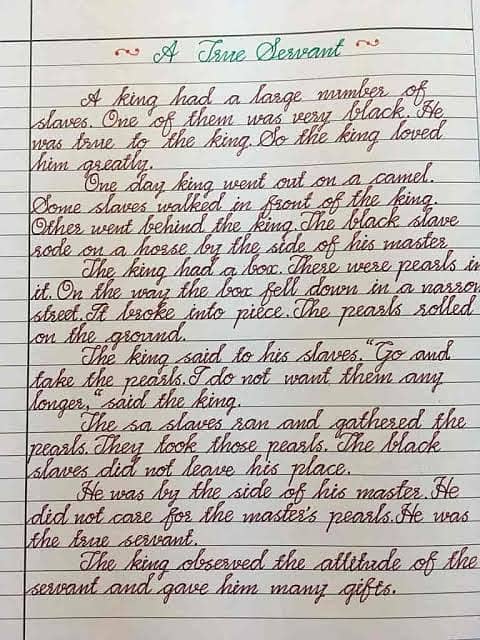 ~ A True Servant ~
A king had a large number of
slaves. One of them was very black. He
was true to the king. So the king loved
him greatly.
One day king went out on a camel.
Some slaves walked in front of the king.
Other went behind the king. The black slave
rode on a horse by the side of his master.
The king had a box. There were pearls in
it. On the way the box fell down in a narrow
street. It broke into piece. The pearls rolled
on the ground.
The king said to his slaves. "Go and
take the pearls. I do not want them any
longer," said the king.
The sa slaves ran and gathered the
pearls. They took those pearls. The black
slaves did not leave his place.
He was by the side of his master. He
did not care for the master's pearls. He was
the true servant.
The king observed the attitude of the
servant and gave him many gifts.